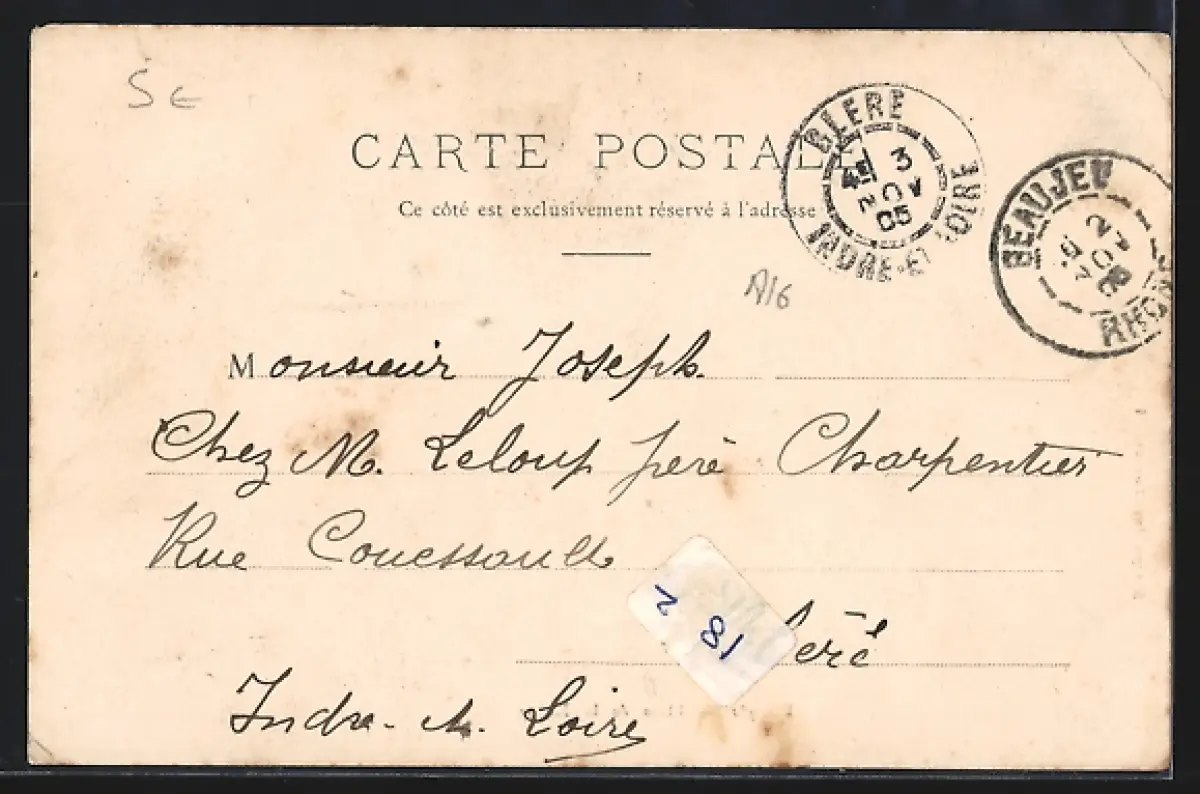 5 €
CARTE POSTALE
Ce côté est exclusivement réservé à l'adresse
BLERE
3
NOV
05
INDRE-ET-LOIRE
BEAUJEU
2
NOV
05
RHONE
A16
Monsieur Joseph
Chez M. Leloup père Charpentier
Rue
18
2
léré
Indre-et-Loire